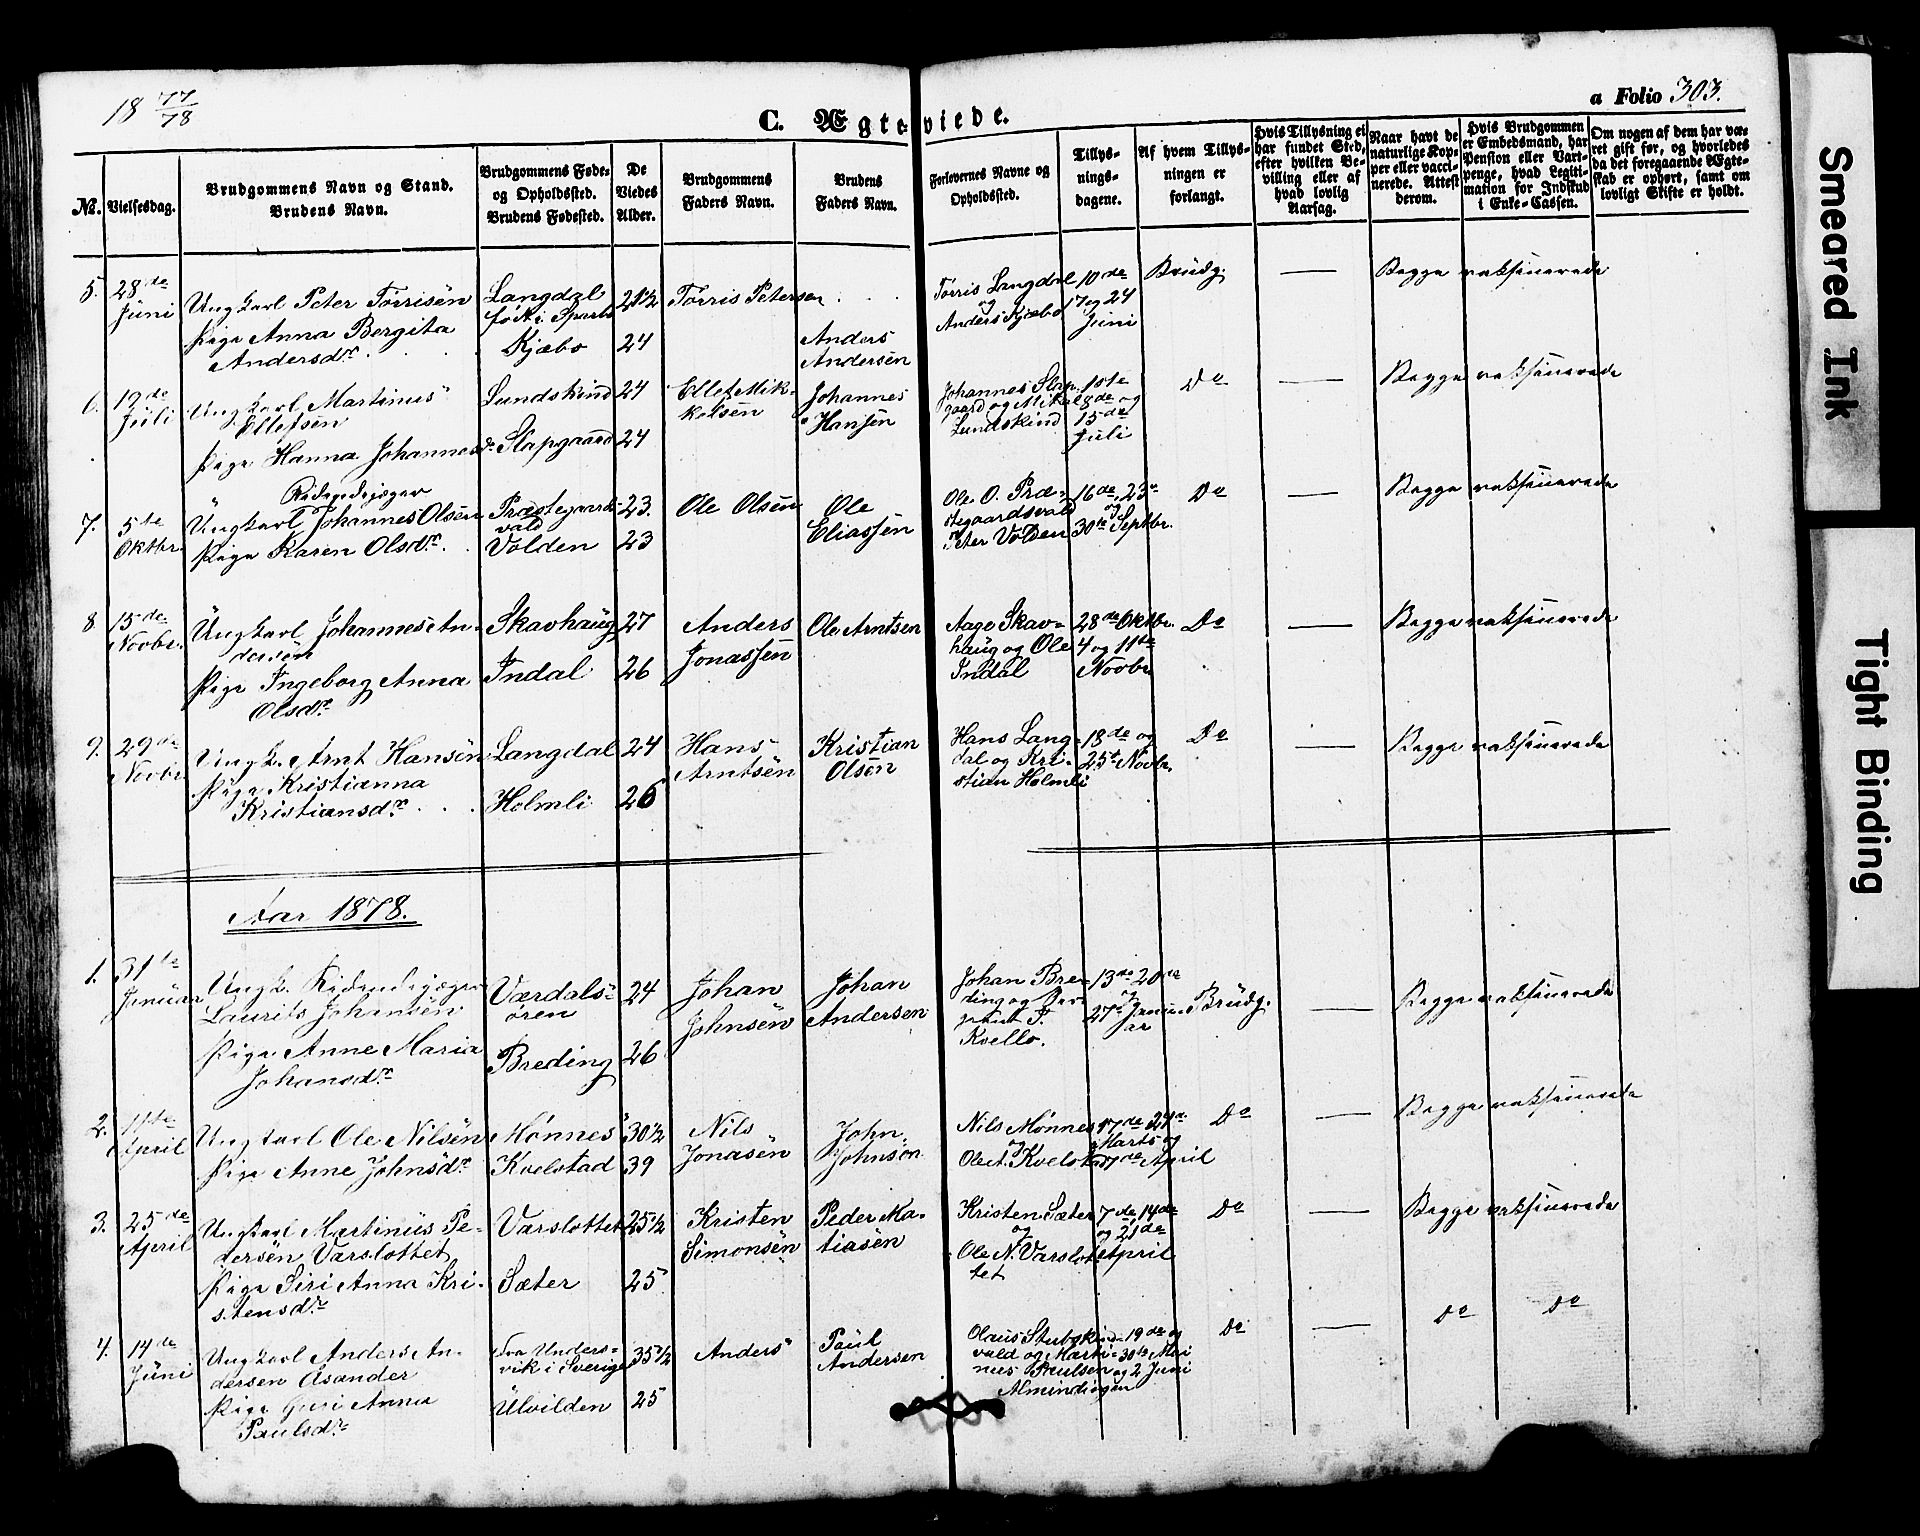 18 77/78
C. Ægteviede.
a Folio 303.
No.
Vielsesdag.
Brudgommens Navn og Stand.
Brudens Navn.
Brudgommens Føde-
og Opholdssted.
Brudens Fødested.
De
Viedes
Alder.
Brudgommens
Faders Navn.
Brudens
Faders Navn.
Forlovernes Navne og
Opholdssted.
Tillys-
nings-
dagene.
Af hvem Tillys-
ningen er
forlangt.
Hvis Tillysning ei
har fundet Sted,
efter hvilken Be-
villing eller af
hvad lovlig
Aarsag.
Naar havt de
naturlige Kop-
per eller vacci-
nerede. Attest
derom.
Hvis Brudgommen
er Embedsmand, har
Pension eller Vart-
penge, hvad Legiti-
mation for Indskud
i Enke-Cassen.
Om nogen af dem har væ-
ret gift før, og hvorledes
da det foregaaende Ægte-
skab er ophørt, samt om
lovligt Skifte er holdt.
5. 28de Juni
Ungkarl Peter Torrisen
Pige Anna Bergita
Andersdr.
Langdal
født i Sparbo
Kjæbo
21½
24
Torris Petersen
Anders
Andersen
Torris Langdal
og
Anders Kjæbo
10de
17 og 24
Juni
Brudg.
Begge vaksinerede
6. 19de Juli
Ungkarl Martinus
Ellefsen
Pige Hanna Johannesdr.
Lundskind
Slapgaard
24
24
Ellef Mik-
kelsen
Johannes
Hansen
Johannes Slap-
gaard og Mikal
Lundskind
1ste
8de og
15de
Juli
Do
Begge vaksinerede
7. 5te Oktbr.
Ridendejæger
Ungkarl Johannes Olsen
Pige Karen Olsdr.
Præstegaards-
vald
Volden
23.
23
Ole Olsen
Ole
Eliassen
Ole O. Præ-
stegaardsvald
Peter Volden
16de, 23de
og
30te Septbr.
Do
Begge vaksinerede
8. 15de Novbr.
Ungkarl Johannes An-
dersen
Pige Ingeborg Anna
Olsdr.
Skavhaug
Indal
27
26
Anders
Jonassen
Ole Arntsen
Aage Skav-
haug og Ole
Indal
28de Oktbr.
4 og 11te
Novbr.
Do
Begge vaksinerede
9. 29de Novbr.
Ungk. Arnt Hansen
Pige Kristianna
Kristiansdr.
Langdal
Holmli
24
26
Hans
Arntsen
Kristian
Olsen
Hans Lang-
dal og Kri-
stian Holmli
18de og
25te Novbr.
Do
Begge vaksinerede
Aar 1878.
1. 31te Januar
Ungk. Ridendejæger
Laurits Johansen
Pige Anne Maria
Johansdr.
Værdals-
ören
Breding
24
26
Johan
Johnsen
Johan
Andersen
Johan Bre-
ding og
Kvello.
13de 20de
og
27de Janu-
ar
Brudg.
Begge vaksinerede
2. 11te April
Ungkarl Ole Nilsen
Pige Anne Johnsdr.
Mønnes
Kvelstad
30½
39
Nils
Jonasen
John
Johnson
Nils Mønnes
og
Ole A. Kvelstad
17de 24de
Marts og
7de April
Do
Begge vaksinerede
3. 25de April
Ungkarl Martinus Pe-
dersen Varslottet
Pige Siri Anna Kri-
stensdr.
Varslottet
Sæter
25½
25
Kristen
Simonsen
Peder Ma-
tiasen
Kristen Sæter
og
Ole N. Varslot-
tet
7de 14de
og 21de
April
Do
Begge vaksinerede
4. 14de Juni
Ungkarl Anders An-
dersen Asander
Pige Guri Anna
Paulsdr.
fra Unders-
vik i Sverige
Ulvilden
35½
25
Anders
Paul
Andersen
Olaus Stubskind-
vald og Marti-
nus Paulsen
Almindingen
19de og
30te Mai
og 2 Juni
Do
Do Do
Smeared Ink
Tight Binding